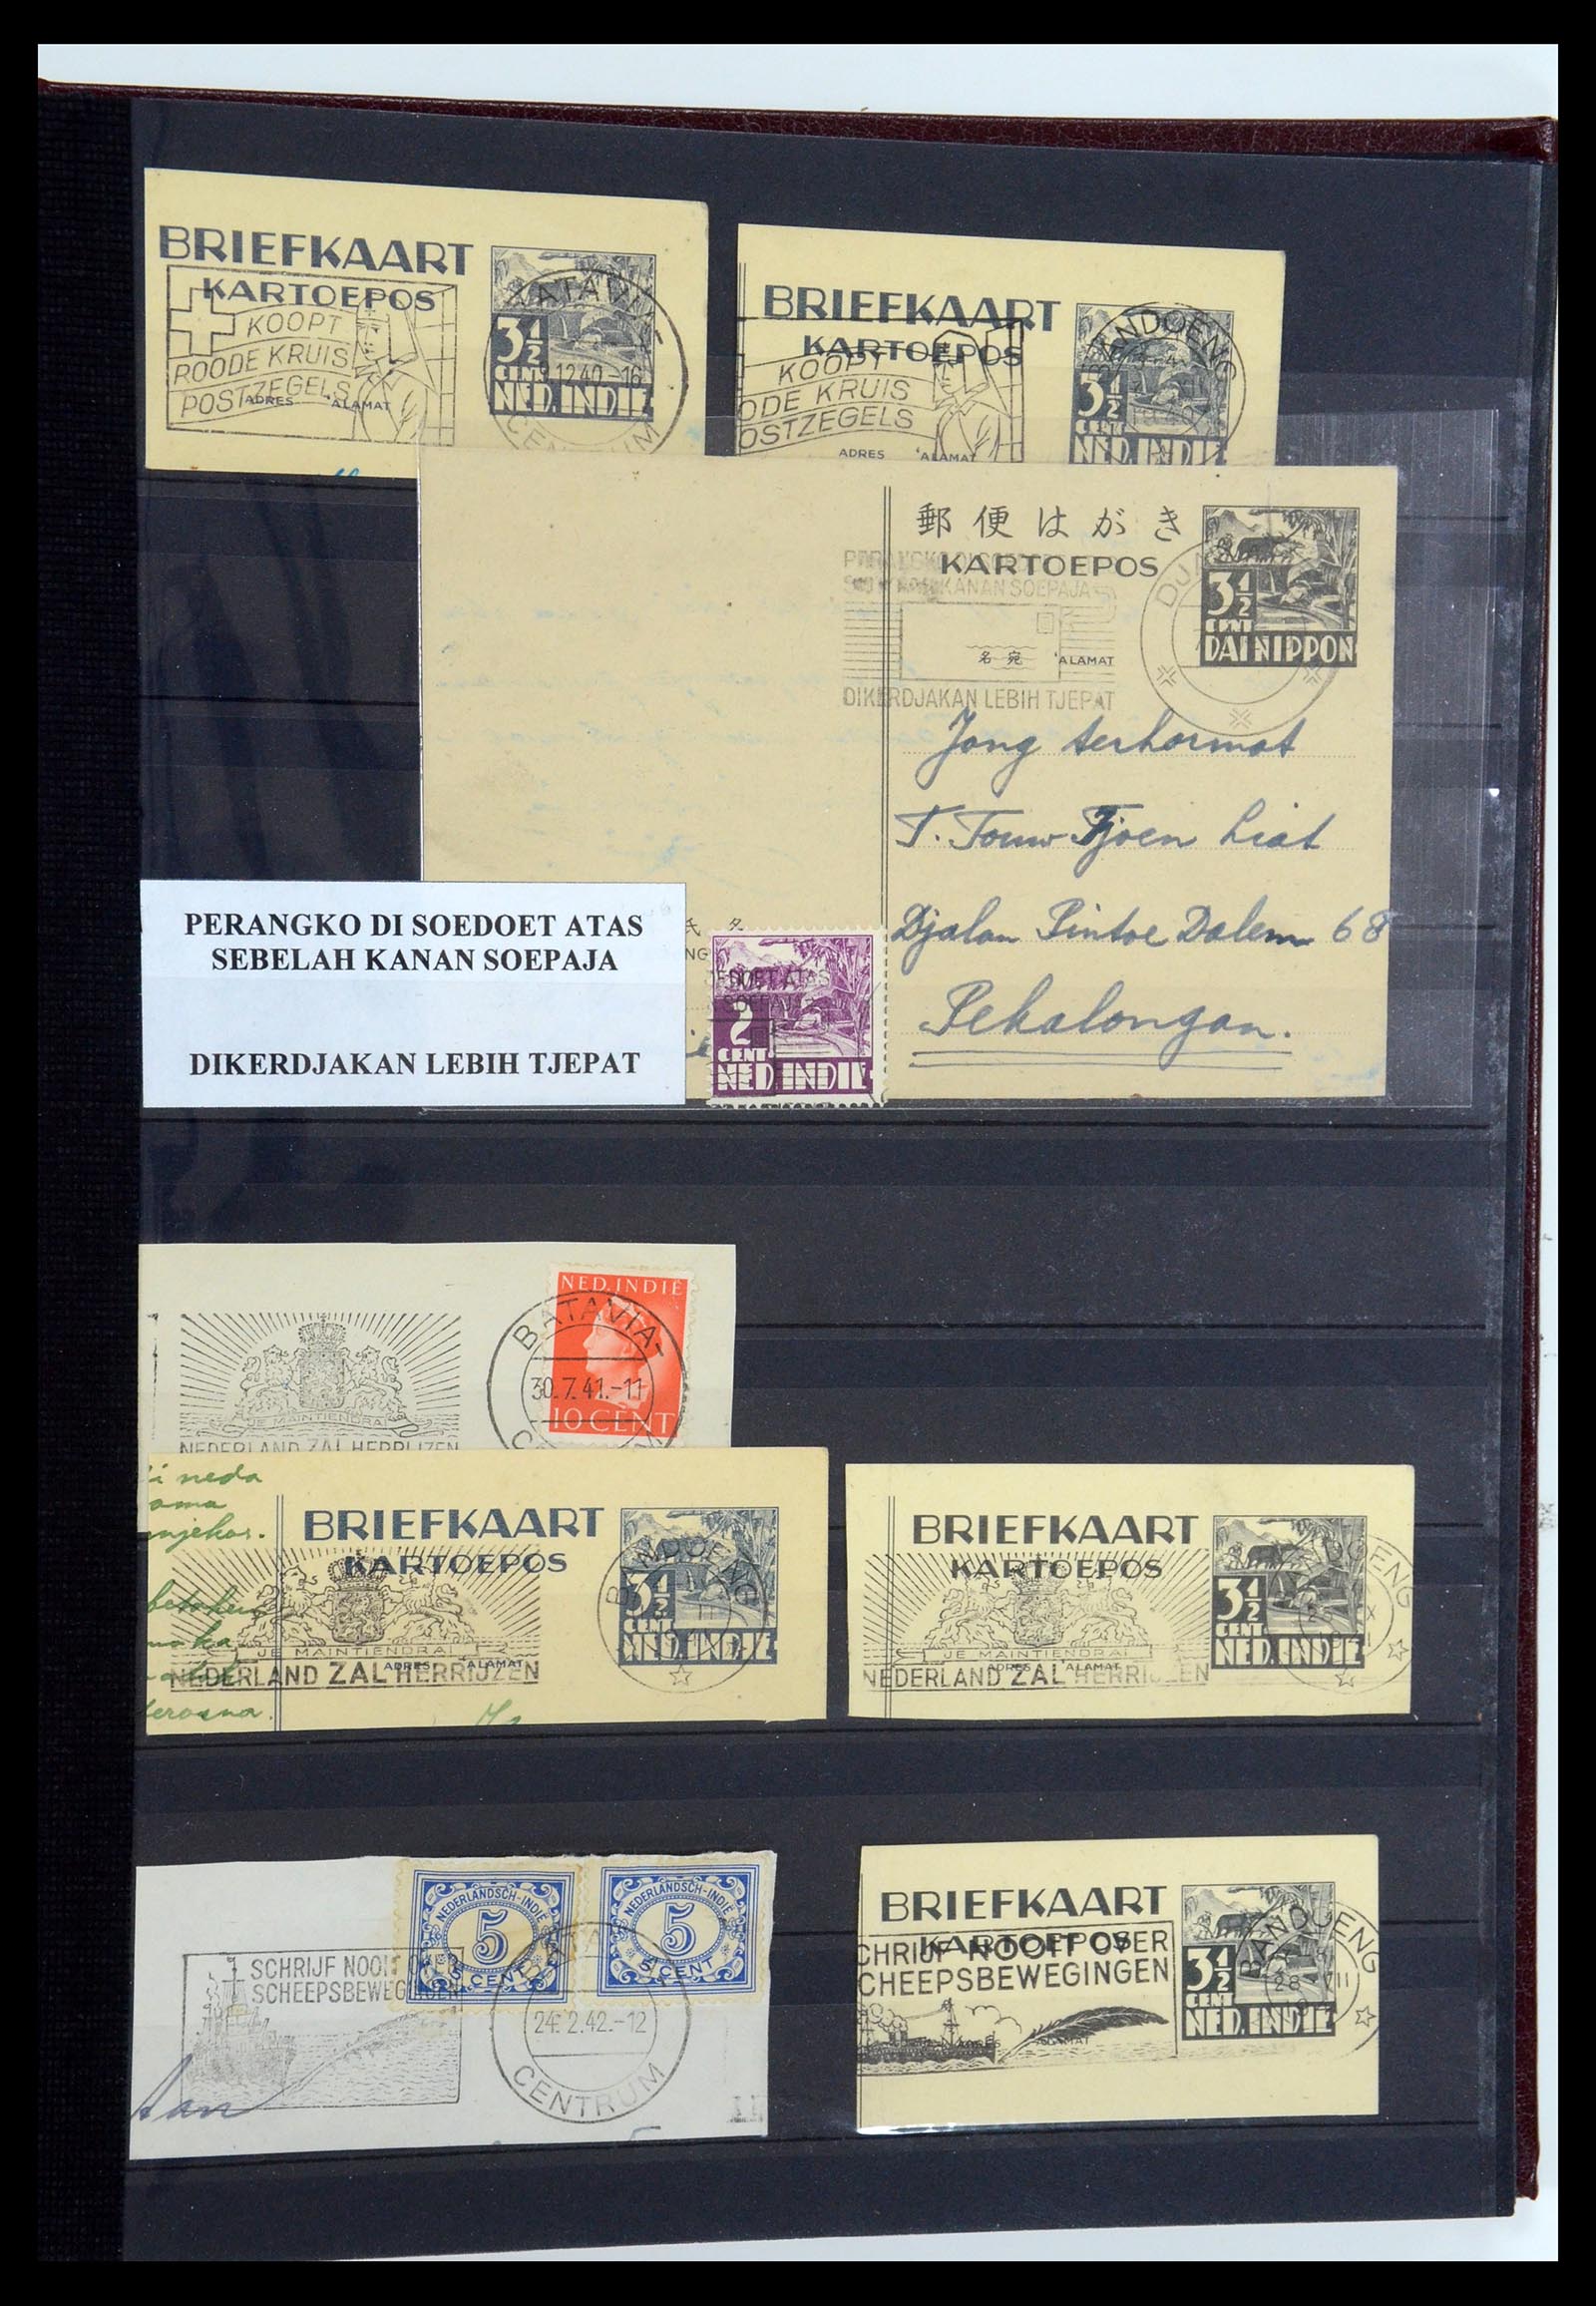 BRIEFKAART
KARTOEPOS
KOOPT
ROODE KRUIS
POSTZEGELS
ADRES 'ALAMAT
3½
CENT
NED. INDIE
12.40.-16
BRIEFKAART
KARTOEPOS
KOOPT
ODE KRUIS
OSTZEGELS
ADRES 'ALAMAT
BANDOENG
3½
CENT
NED. INDIE
郵便はがき
KARTOEPOS
KANAN SOEPAJA
名宛 'ALAMAT
DIKERDJAKAN LEBIH TJEPAT
3½
CENT
DAI NIPPON
Jang terhormat
T. Touw Tjoen Liat
Djalan Pintoe Dalem 68
Pekalongan.
PERANGKO DI SOEDOET ATAS
SEBELAH KANAN SOEPAJA
DIKERDJAKAN LEBIH TJEPAT
OEDOET ATAS
2
CENT
NED. INDIE
NED. INDIE
10 CENT
BATAVIA
30.7.41.-11
JE MAINTIENDRAI
NEDERLAND ZAL HERRIJZEN
neda
njekos.
BRIEFKAART
KARTOEPOS
JE MAINTIENDRAI
ADRES 'ALAMAT
NEDERLAND ZAL HERRIJZEN
BANDOENG
3½
CENT
NED. INDIE
BRIEFKAART
KARTOEPOS
JE MAINTIENDRAI
ADRES 'ALAMAT
NEDERLAND ZAL HERRIJZEN
3½
CENT
NED. INDIE
NEDERLANDSCH-INDIË
5
5 CENT
NEDERLANDSCH-INDIË
5
5 CENT
SCHRIJF NOOIT OVER
SCHEEPSBEWEGINGEN
24.2.42.-12
CENTRUM
Aan
BRIEFKAART
KARTOEPOS
CHRIJF NOOIT OVER
CHEEPSBEWEGINGEN
BANDOENG
3½
CENT
NED. INDIE